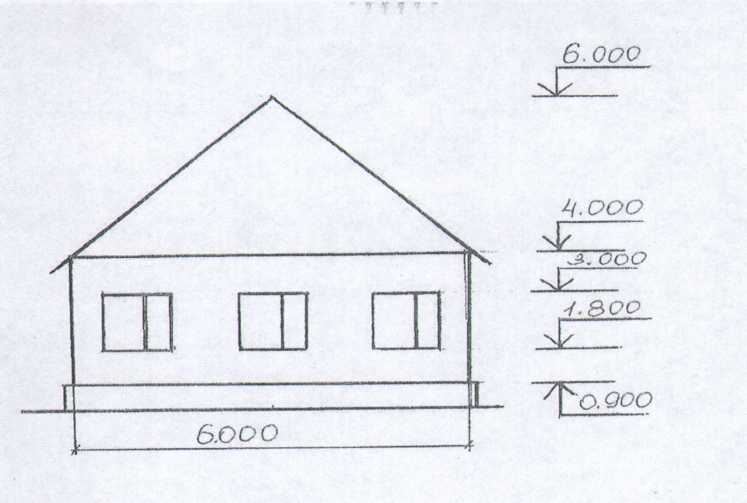 6.000
4.000
3.000
1.800
0.900
6.000